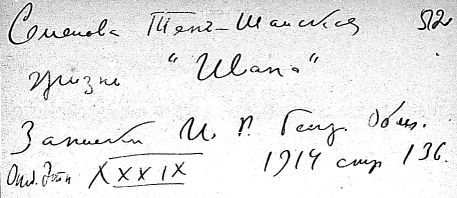 Семенова Тянь-Шанская 512
жизнь "Ивана"
Записки И. Р. Геогр. Общ.
Отд. Этн XXXIX 1914 стр 136.